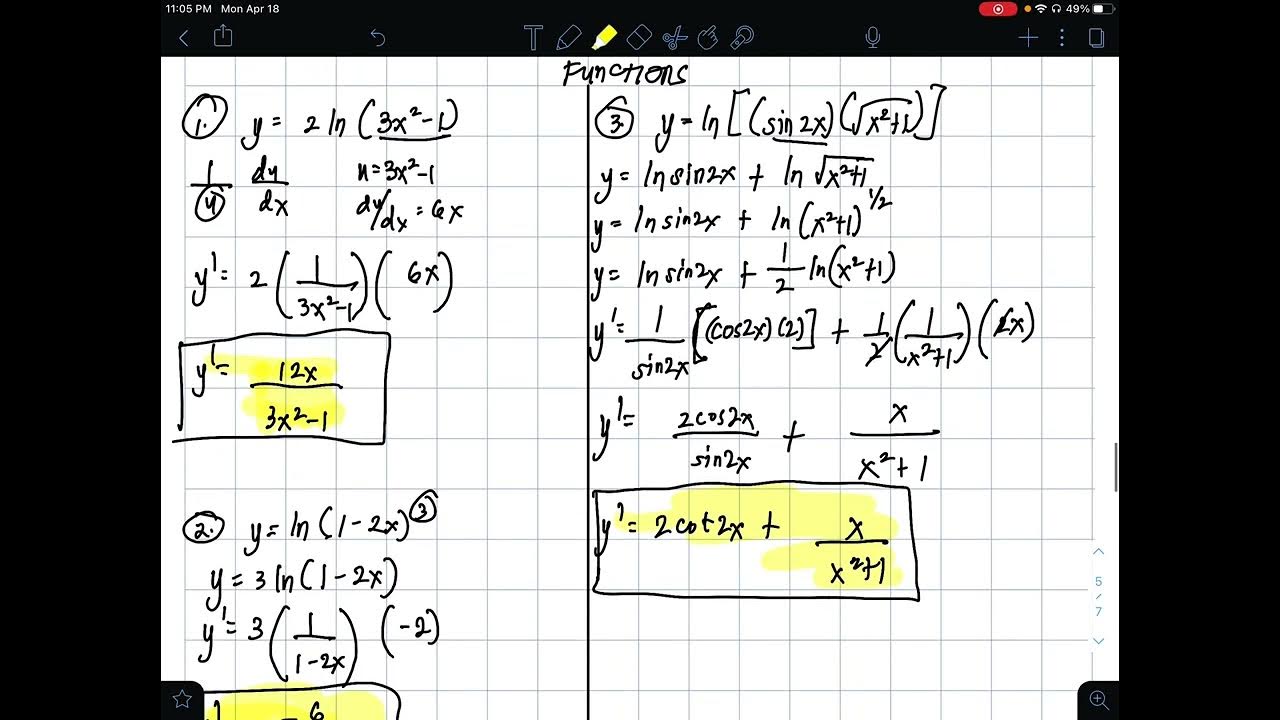 11:05 PM Mon Apr 18
49%
Functions
1. y = 2 ln (3x²-1)
1/u du/dx
u = 3x²-1
du/dx = 6x
y' = 2 (1/(3x²-1)) (6x)
y' = 12x/(3x²-1)
2. y = ln (1-2x)③
y = 3 ln (1-2x)
y' = 3 (1/(1-2x)) (-2)
- 6
3. y = ln [(sin 2x)(√(x²+1))]
y = ln sin2x + ln √(x²+1)
y = ln sin2x + ln (x²+1)^1/2
y = ln sin2x + 1/2 ln(x²+1)
y' = 1/sin2x [(cos2x)(2)] + 1/2 (1/(x²+1)) (2x)
y' = 2cos2x/sin2x + x/(x²+1)
y' = 2cot2x + x/(x²+1)
5
/
7